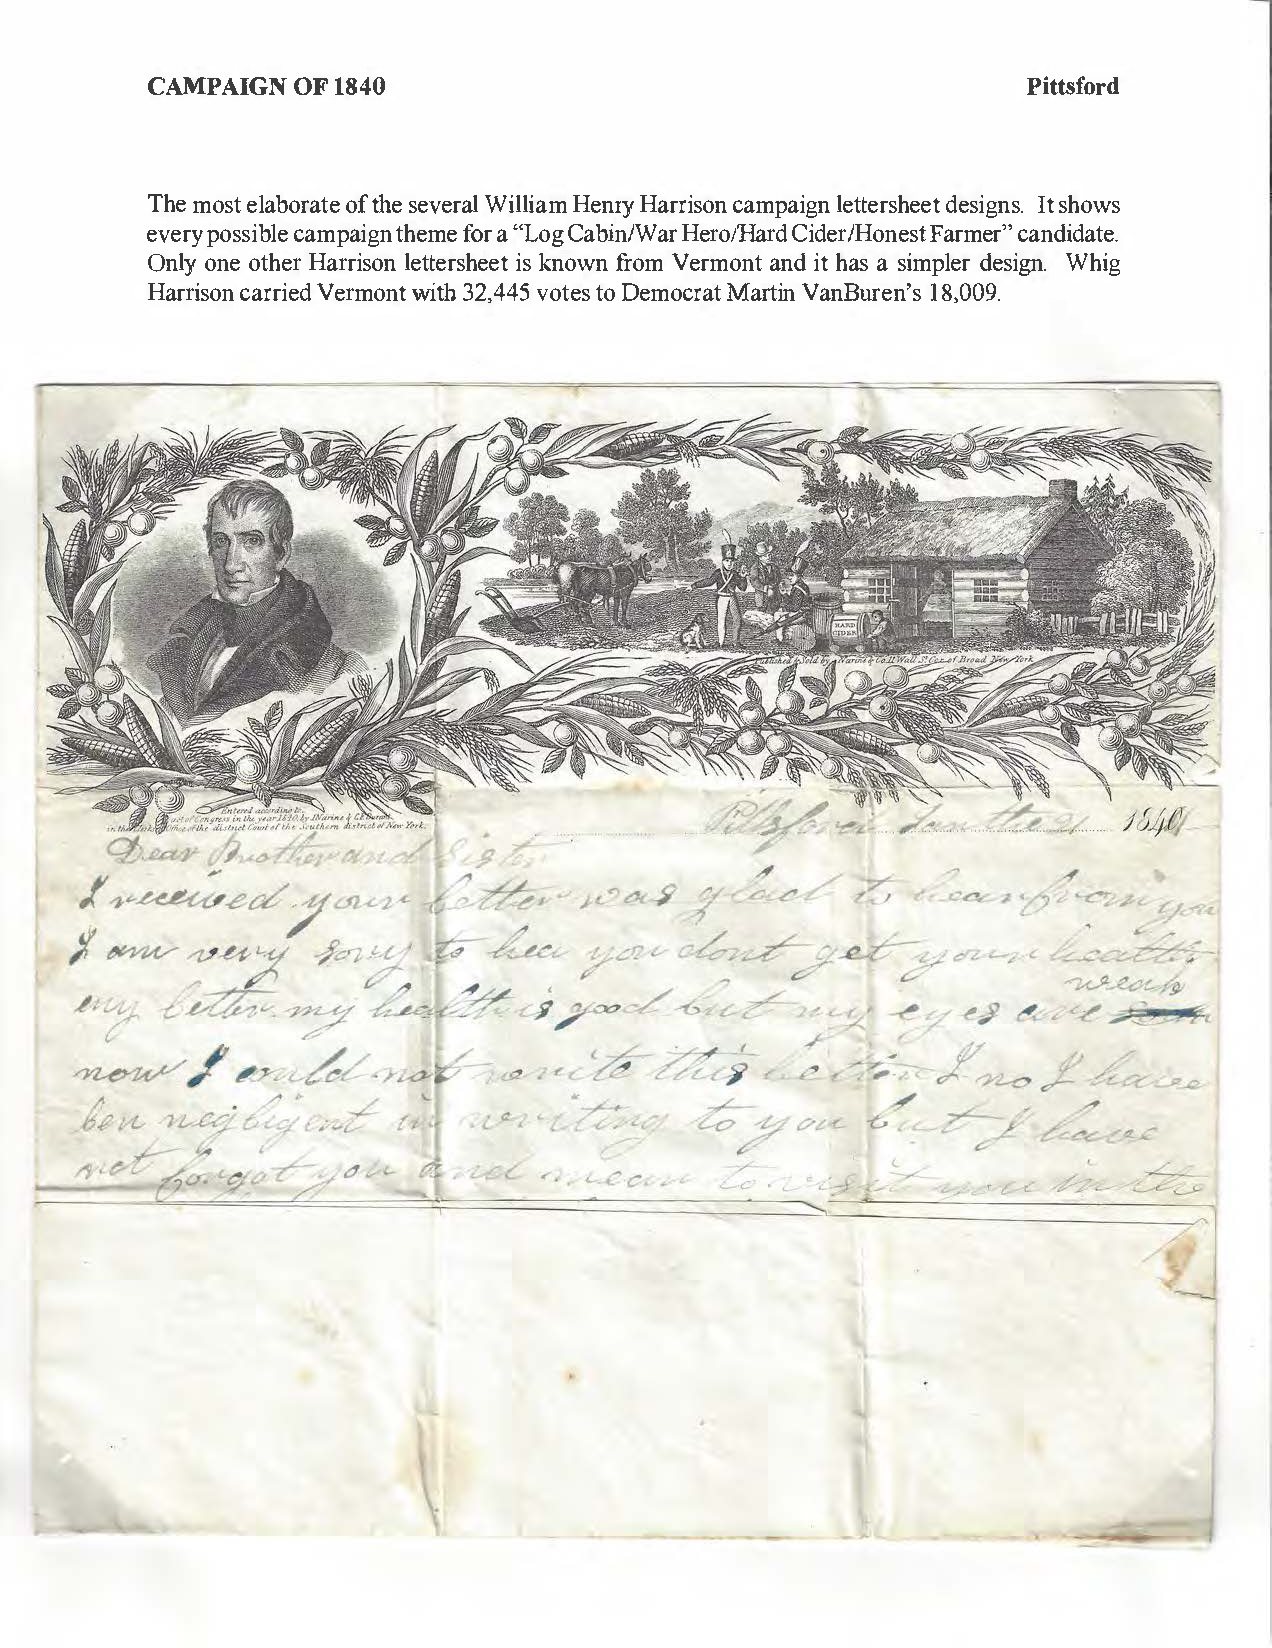 CAMPAIGN OF 1840 Pittsford
The most elaborate of the several William Henry Harrison campaign lettersheet designs. It shows
every possible campaign theme for a “Log Cabin/War Hero/Hard Cider/Honest Farmer” candidate.
Only one other Harrison lettersheet is known from Vermont and it has a simpler design. Whig
Harrison carried Vermont with 32,445 votes to Democrat Martin VanBuren’s 18,009.
HARD
CIDER
Published & Sold by Narine & Co. 11 Wall St. Cor. of Broad New York
Entered according to
act of Congress in the year 1840, by J Narine &
in the Clerks Office of the district Court of the Southern district of New York.
Pittsford the 21 1840
Dear Brother and Sister
I received your letter was glad to hear from you
I am very sorry to hea you dont get your health
weak
eny better my health is good but my eyes are
now I could not write this letter I no I have
ben negligent in writing to you but I have
not forgot you and mean to visit you in the